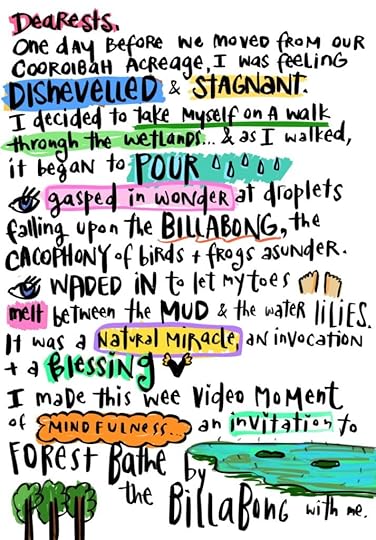 Dearests,
One day before we moved from our
Cooroibah Acreage, I was feeling
DISHEVELLED & STAGNANT.
I decided to take myself on a walk
through the wetlands... & as I walked,
it began to POUR
gasped in wonder at droplets
falling upon the BILLABONG, the
CACOPHONY of birds + frogs asunder.
WADED IN to let my toes
melt between the MUD & the water LILIES.
It was a Natural MIRACLE, an invocation
+ a Blessing
I made this wee Video Moment
of MINDFULNESS... an invitation to
FOREST Bathe by
the BillaBong with me.